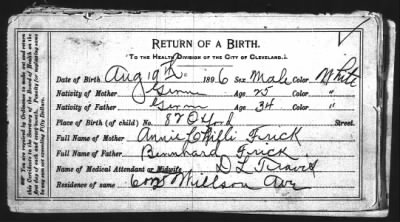 RETURN OF A BIRTH.
TO THE HEALTH DIVISION OF THE CITY OF CLEVELAND.
Date of Birth Aug 19th 1896 Sex Male Color White
Nativity of Mother Germ Age 25 Color "
Nativity of Father Germ Age 34 Color "
Place of Birth (of child) No. 82 Oxford Street.
Full Name of Mother Annie Frick
Full Name of Father Bernhard Frick
Name of Medical Attendant or Midwife D L Travis
Residence of same Willson Ave
You are required by Ordinance to make out and return
this Certificate to the Secretary of the Board of Health on the